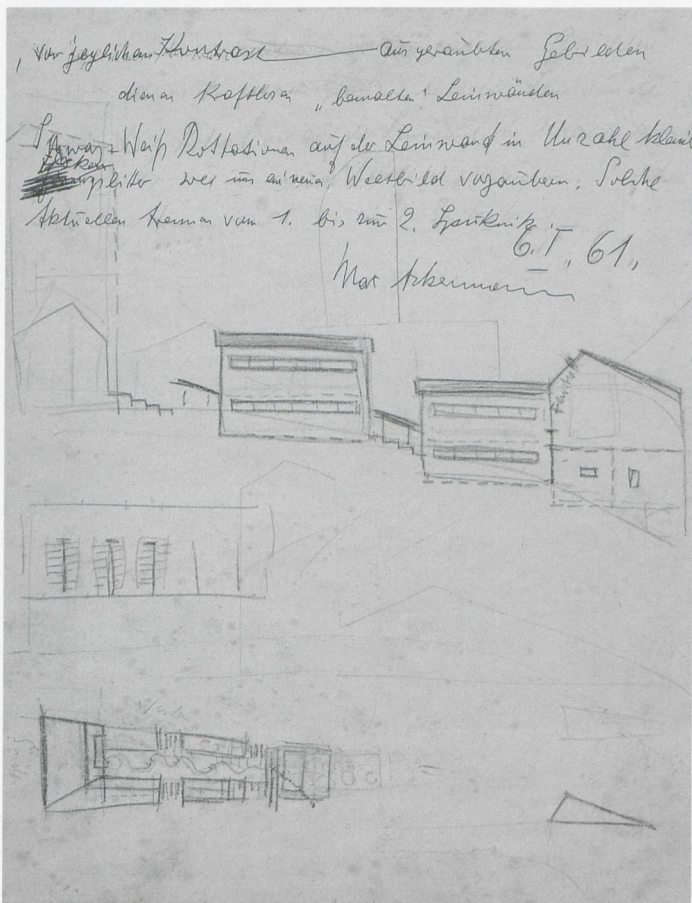 , vor jeglichem Kontrast — ausgeraubten Gebilden
dienen kraftlosen „bemalten“ Leinwänden
Schwarz-Weiß Rottationen auf der Leinwand in Unzahl kleine
um ein neues Weltbild vorzaubern. Solche
Aktuellen kommen vom 1. bis zum 2. Sputnik.
6. I. 61,
Max Ackermann